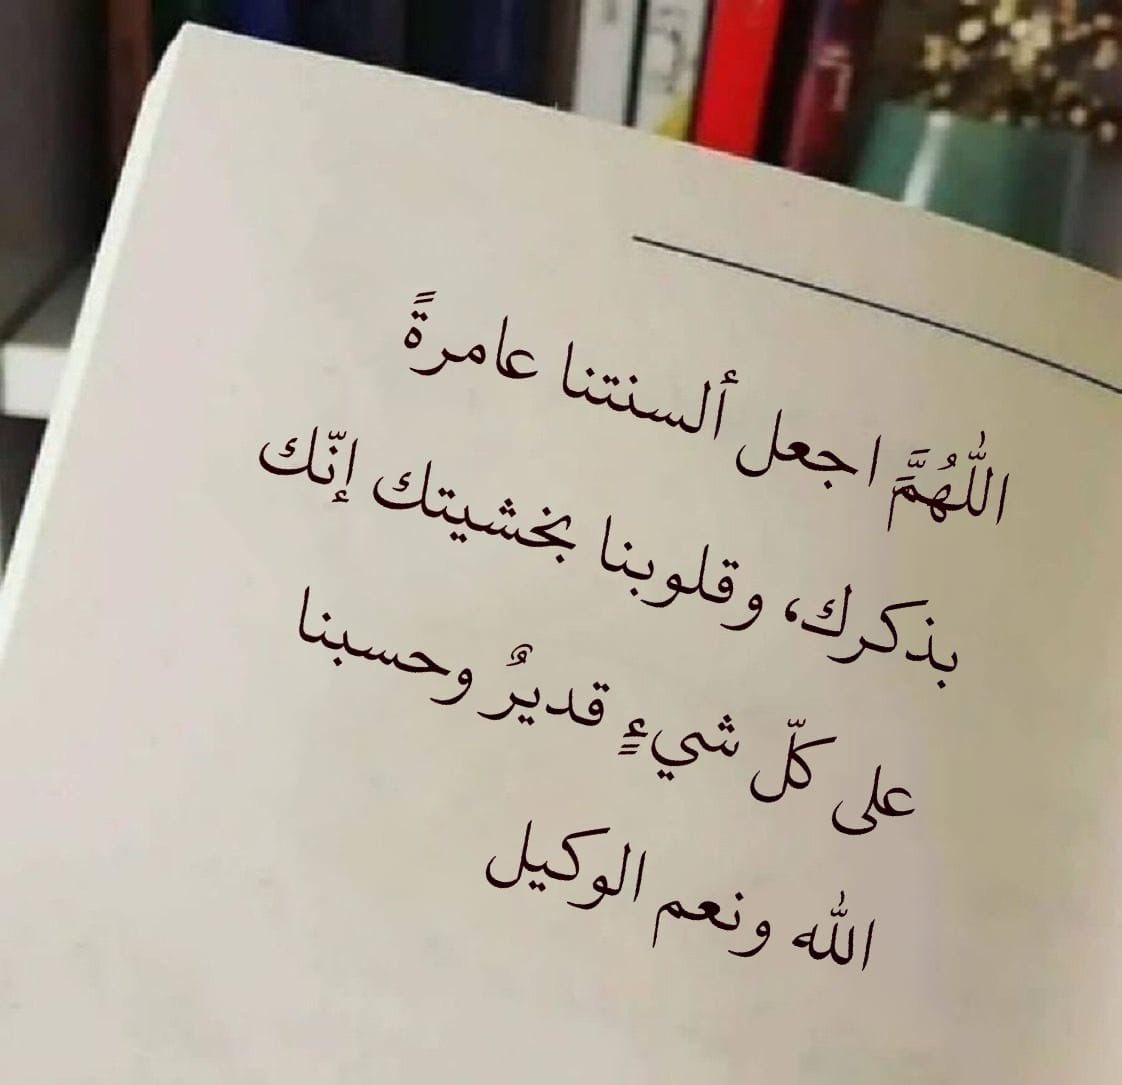 اللّٰهُمَّ اجعل ألسنتنا عامرةً
بذكرك، وقلوبنا بخشيتك إنّك
على كلّ شيءٍ قديرٌ وحسبنا
الله ونعم الوكيل